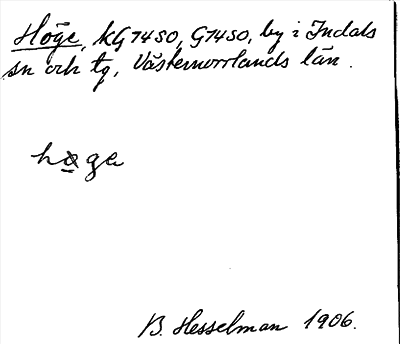 Höge, KG74SO, G74SO, by i Indals
sn och tg, Västernorrlands län.
høge
B. Hesselman 1906.